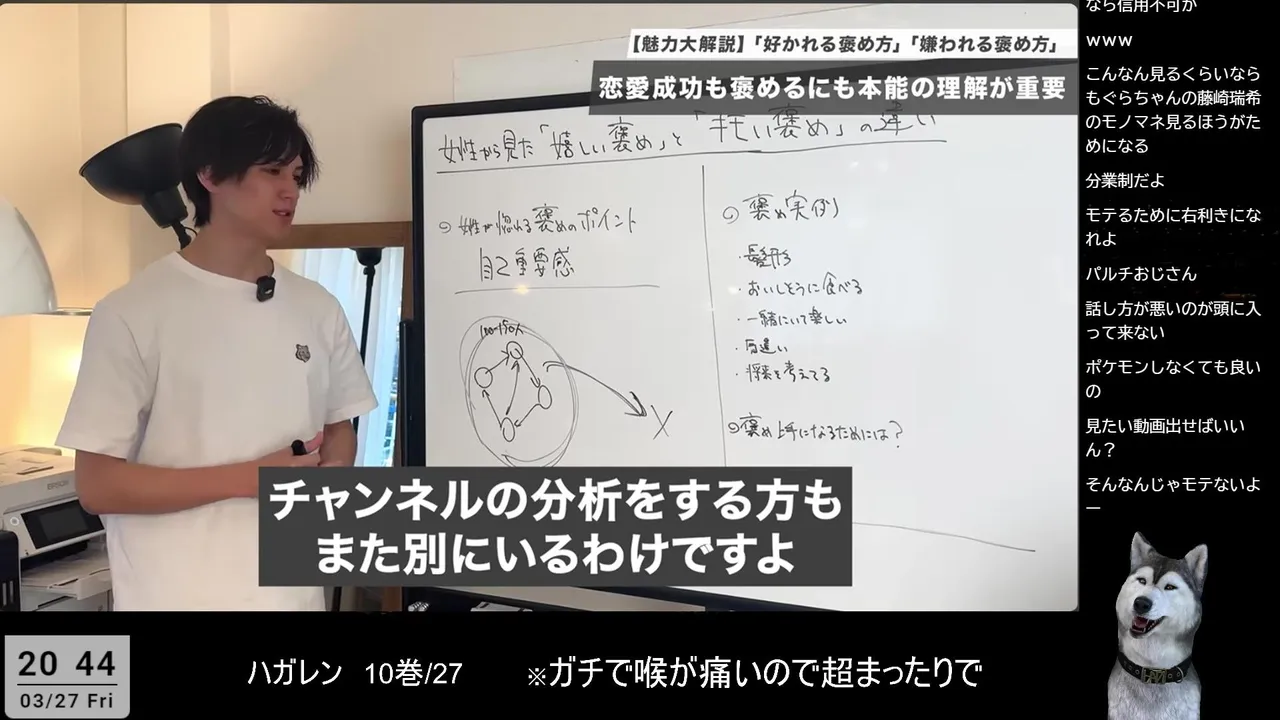 【魅力大解説】「好かれる褒め方」「嫌われる褒め方」
恋愛成功も褒めるにも本能の理解が重要
女性から見た「嬉しい褒め」と「キモい褒め」の違い
女性が惚れる褒めのポイント
自己重要感
100~150人
X
褒め実例
・髪形
・おいしそうに食べる
・一緒にいて楽しい
・気遣い
・将来を考えてる
褒め上手になるためには?
EPSON
チャンネルの分析をする方も
また別にいるわけですよ
なら信用不可か
www
こんなん見るくらいなら
もぐらちゃんの藤崎瑞希
のモノマネ見るほうがた
めになる
分業制だよ
モテるために右利きにな
れよ
パルチおじさん
話し方が悪いのが頭に入
って来ない
ポケモンしなくても良い
の
見たい動画出せばいい
ん?
そんなんじゃモテないよ
ー
20 44
03/27 Fri
ハガレン 10巻/27
※ガチで喉が痛いので超まったりで